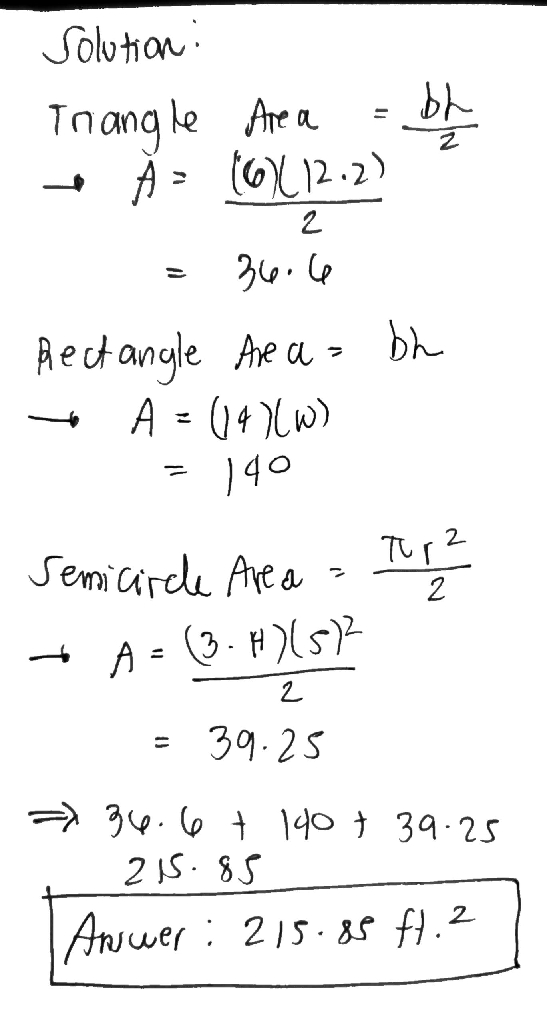 Solution:
Triangle Area = bh
2
→ A = (6)(12.2)
2
= 36.6
Rectangle Area = bh
→ A = (14)(10)
= 140
Semicircle Area = πr²
2
→ A = (3.14)(5)²
2
= 39.25
⇒ 36.6 + 140 + 39.25
215.85
Answer: 215.85 ft.²